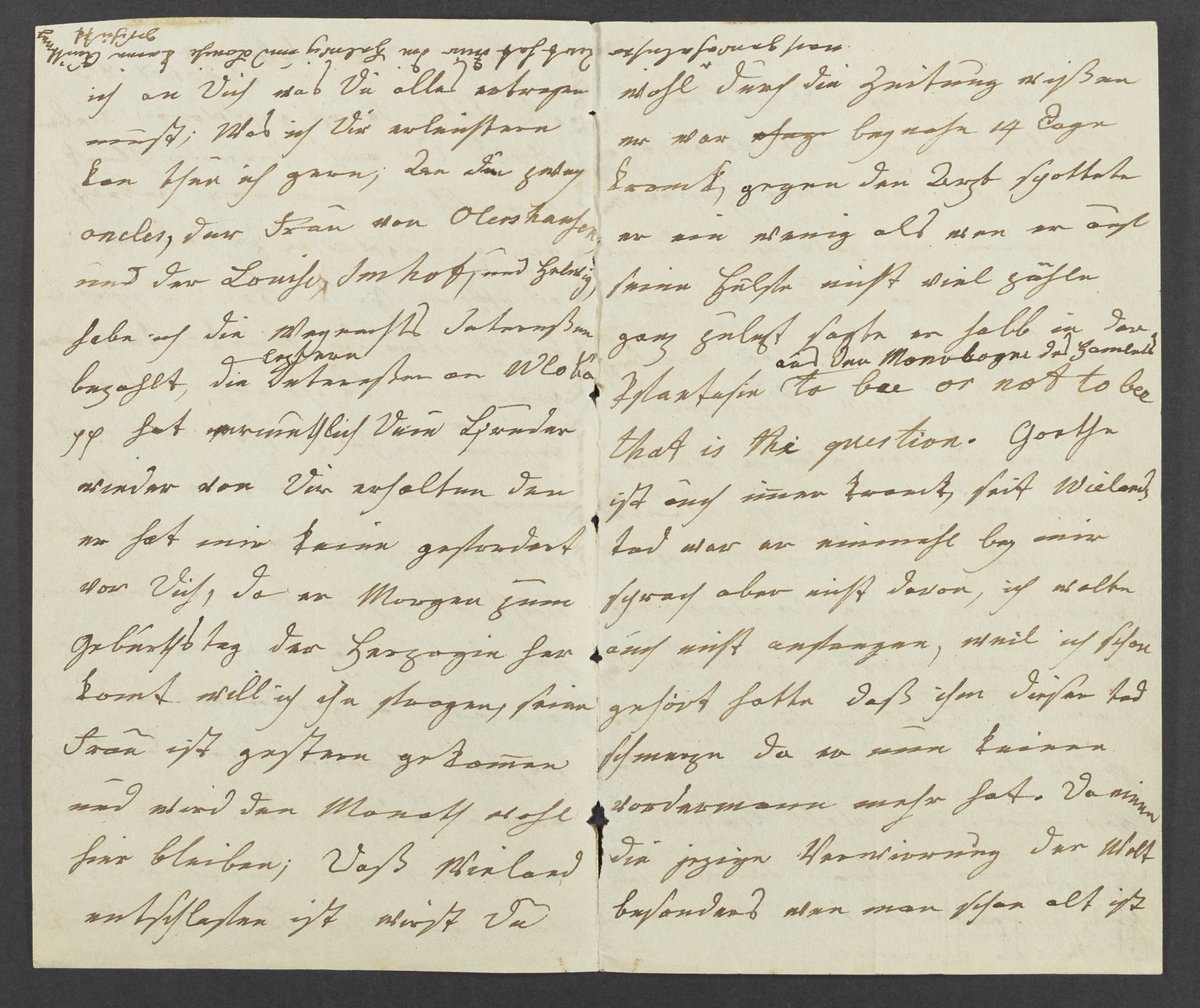 ich an Dich was Du alles ertragen
must; Was ich Dir erleichtern
kan thue ich gern; den zwey
oncles, der Frau von Olershausen
und der Louise Imhof, und Helwig,
habe ich die Weynachts Interessen
bezahlt, die leztern Interessen an
pp. hat vermuthlich Dein Bruder
wieder von Dir erhalten den
er hat mir keine gefordert
vor Dich, da er Morgen zum
Geburthstag der Herzogin her
komt will ich ihn fragen, seine
Frau ist gestern gekommen
und wird den Monath wohl
hier bleiben; Daß Wieland
entschlafen ist wirst Du
wohl durch die Zeitung wißen
er war beynahe 14 Tage
kranck, gegen den Arzt spottete
er ein wenig als wen er auf
seine Hülfe nicht viel zähle
ganz zulezt sagte er halb in der
aus den Monologue des Hamlets
Phantasie to bee or not to bee
that is the question. Goethe
ist auch immer kranck, seit Wielands
tod war er einmahl bey mir
sprach aber nicht davon, ich wolte
auch nicht anfangen, weil ich schon
gehört hatte daß ihn dieser tod
schmerze da er nun keinen
vordermann mehr hat. Da einen
die jezige Verwirrung der Welt
besonders wen man schon alt ist